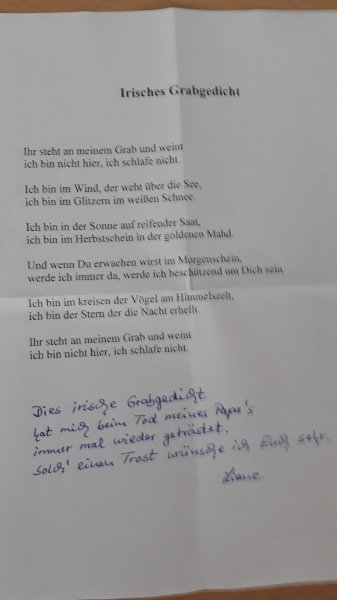 Irisches Grabgedicht
Ihr steht an meinem Grab und weint
ich bin nicht hier, ich schlafe nicht.
Ich bin im Wind, der weht über die See,
ich bin im Glitzern im weißen Schnee.
Ich bin in der Sonne auf reifender Saat,
ich bin im Herbstschein in der goldenen Mahd.
Und wenn Du erwachen wirst im Morgenschein,
werde ich immer da, werde ich beschützend um Dich sein.
Ich bin im kreisen der Vögel am Himmelszelt,
ich bin der Stern der die Nacht erhellt.
Ihr steht an meinem Grab und weint
ich bin nicht hier, ich schlafe nicht.
Dies irische Grabgedicht
hat mich beim Tod meines Papa's
immer mal wieder getröstet.
Solch' einen Trost wünsche ich Euch sehr.
Liane